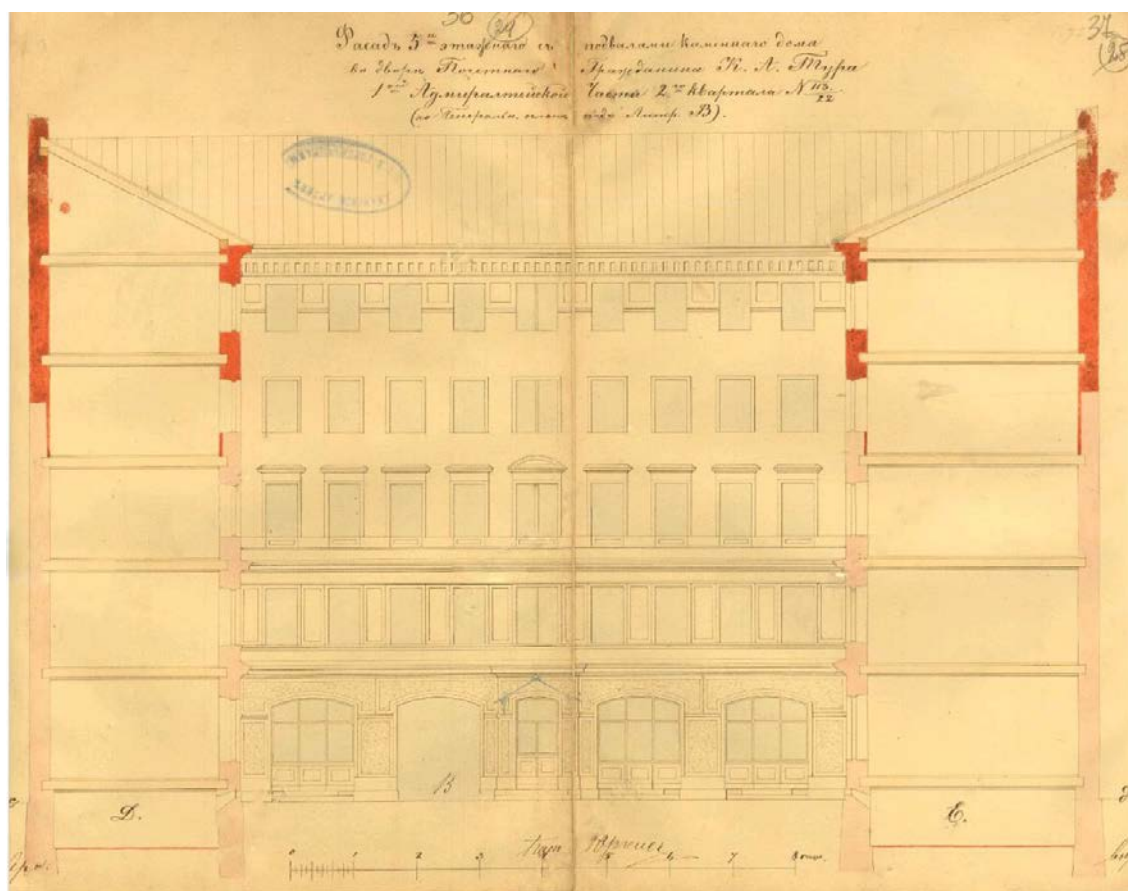 36 29
37
28
Фасадъ 5ти этажнаго съ подвалами каменнаго дома
во дворѣ Почетнаго Гражданина К. А. Тура
1ой Адмиралтейской Части 2го квартала № 113/22
(по Генеральн. плану подъ Литр. В).
В
D.
E.
0 1 2 3 4 5 6 7 8 саж.